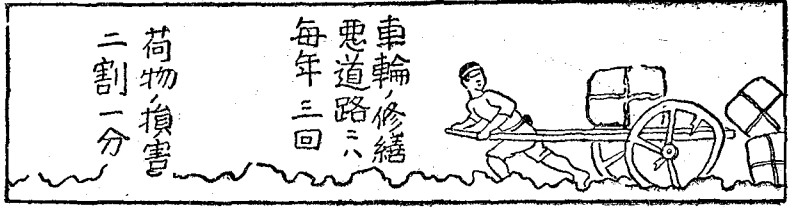 車輪ノ修繕
悪道路ニハ
毎年三回
荷物ノ損害
二割一分